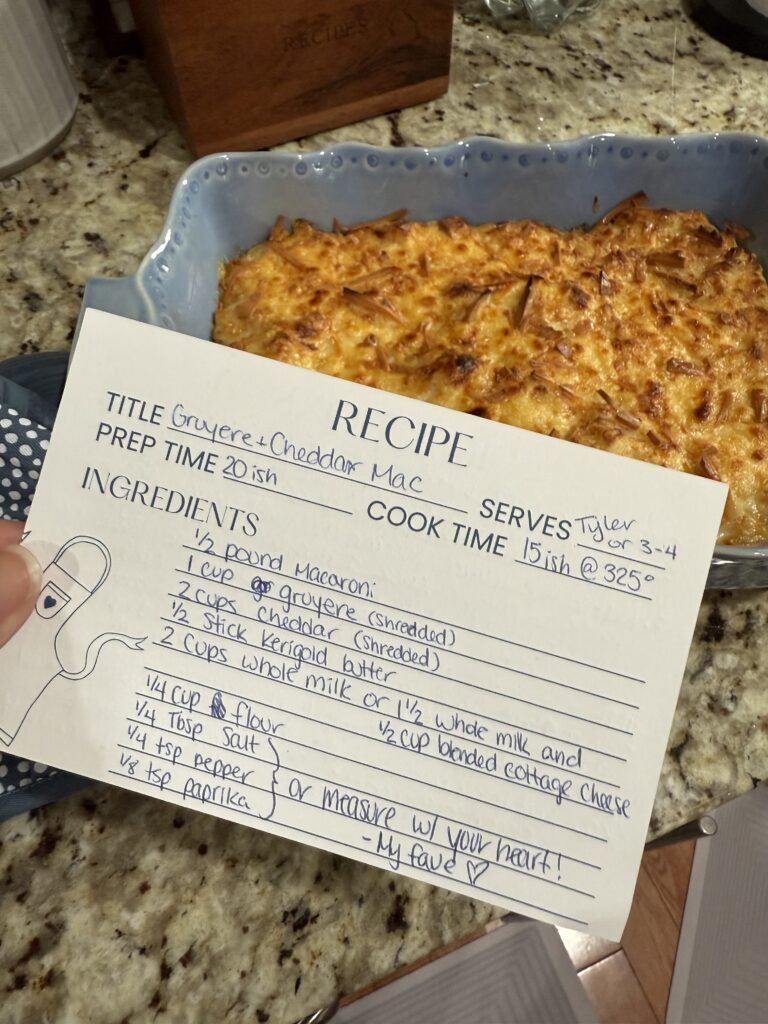 RECIPES
RECIPE
TITLE Gruyere + Cheddar Mac
SERVES Tyler or 3-4
PREP TIME 20 ish
COOK TIME 15 ish @ 325°
INGREDIENTS
1/2 pound Macaroni
1 cup gruyere (shredded)
2 cups cheddar (shredded)
1/2 stick Kerigold butter
2 cups whole milk or 1 1/2 whole milk and
1/2 cup blended cottage cheese
1/4 cup flour
1/4 Tbsp Salt
1/4 tsp pepper
1/8 tsp paprika
or measure w/ your heart!
- My fave ♡